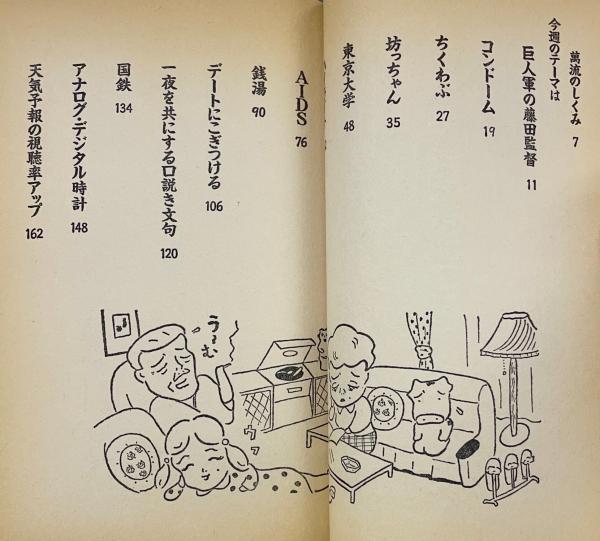 萬流のしくみ 7
今週のテーマは
巨人軍の藤田監督 11
コンドーム 19
ちくわぶ 27
坊っちゃん 35
東京大学 48
AIDS 76
銭湯 90
デートにこぎつける 106
一夜を共にする口説き文句 120
国鉄 134
アナログ・デジタル時計 148
天気予報の視聴率アップ 162
う〜む